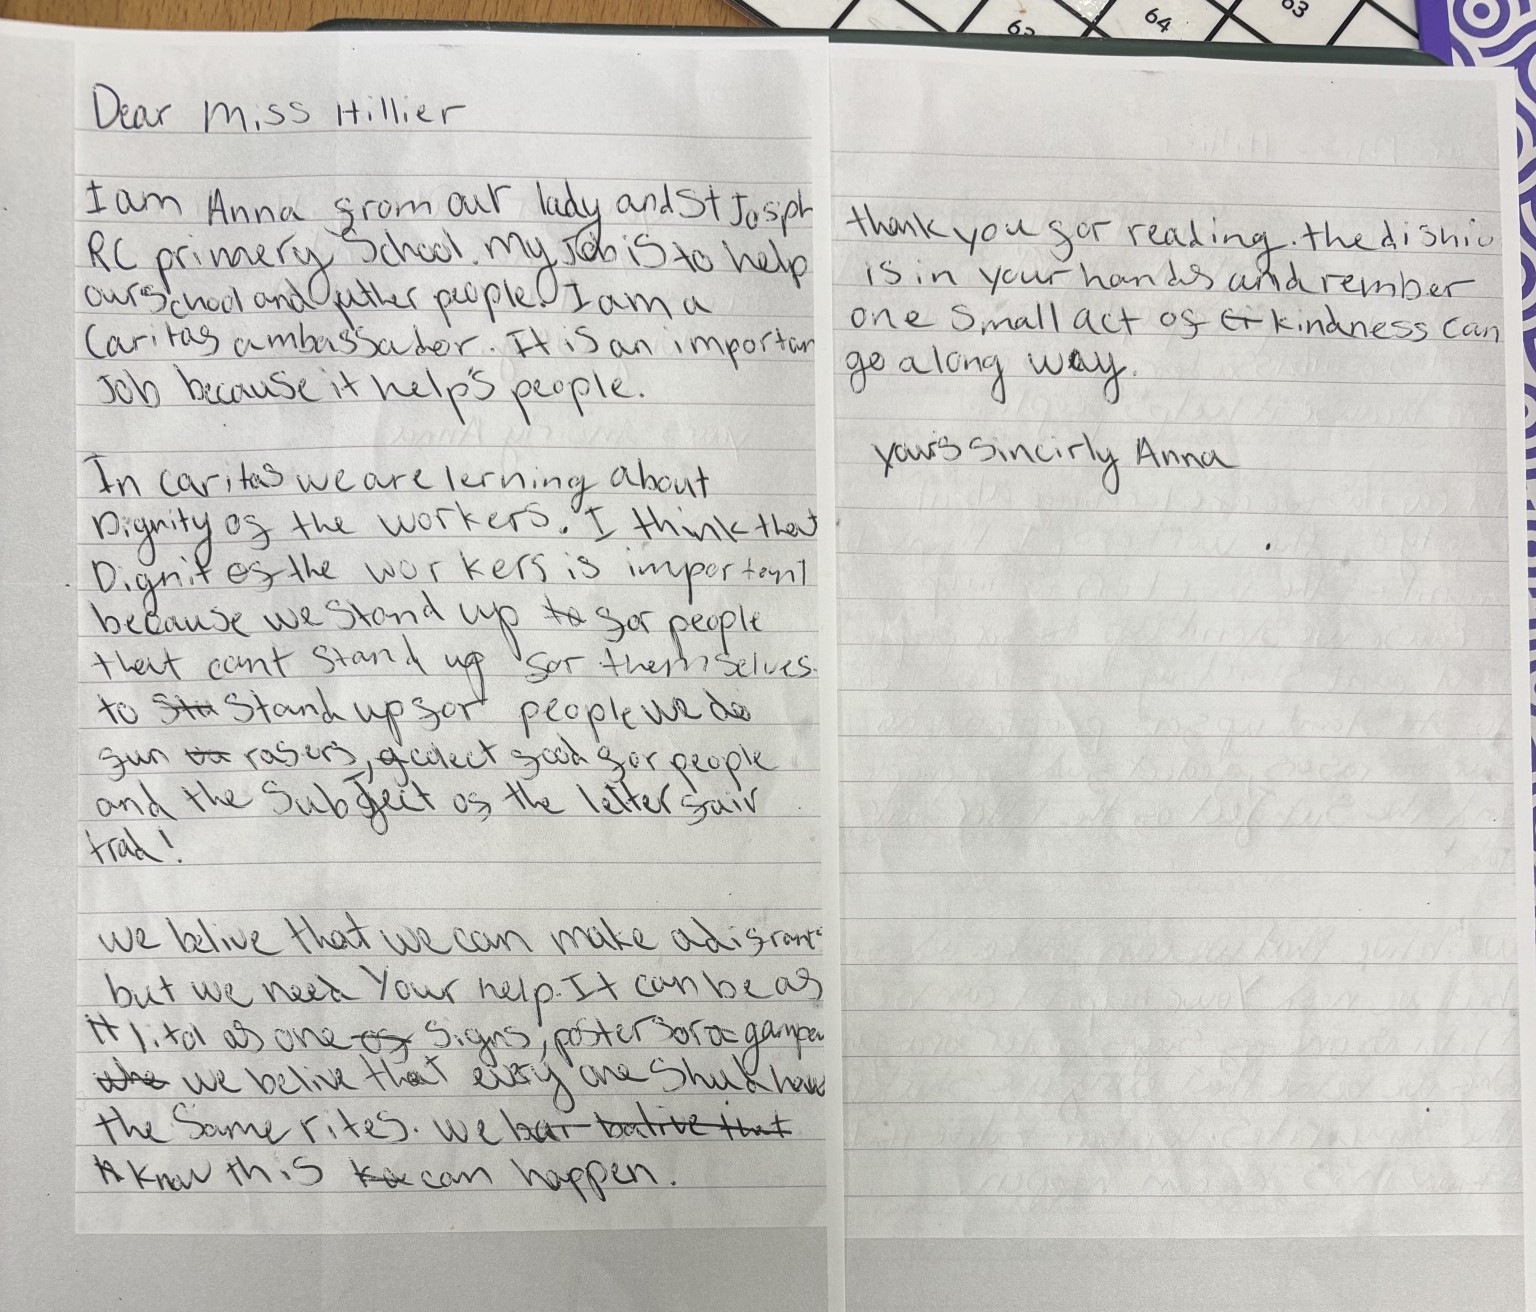 63
64
63
Dear Miss Hillier
I am Anna from our lady and St Josph
RC primery School. My Job is to help
our school and uther people. I am a
Caritas ambassador. It is an importan
Job because it help's people.
In caritas we are lerning about
Dignity of the workers. I think that
Dignit of the workers is important
because we stand up to for people
that cant stand up for themselves.
to sta stand up for people we do
fun ra rasers, colect food for people
and the Subject of the letter fair
trad!
we belive that we can make a difrant
but we need Your help. It can be as
lital as one of signs, posters or a
we belive that evry one Shuld have
the Same rites. we belive that
know this can happen.
thank you for reading. the dishio
is in your hands and rember
one small act of kindness can
go a long way.
yours sincirly Anna